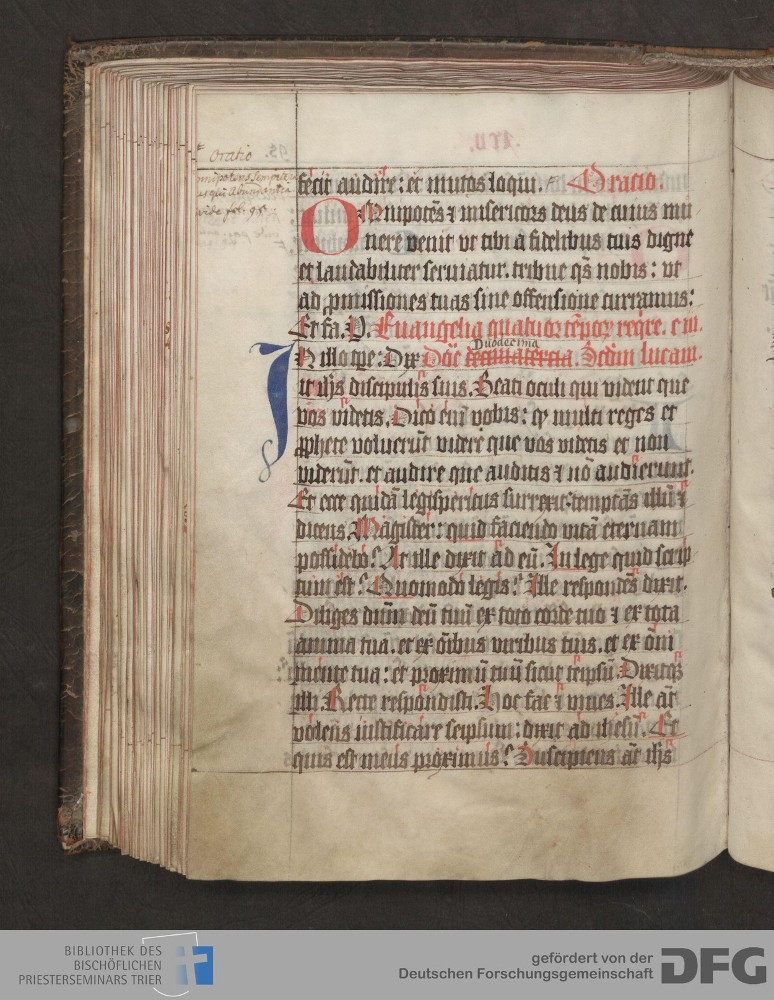 oratio
omnipotens sempiterne
vide fol. 95.
fecit audire: et mutos loqui. Oratio.
OMnipotēs ⁊ misericors deus de cuius mu
nere venit vt tibi a fidelibus tuis digne
et laudabiliter seruiatur. tribue qs̄ nobis: vt
ad ꝓmissiones tuas sine offensione curramus:
Et fa. P. Euangelia quatuor tēpoꝝ reqͥre. e iii.
Duodecima
IN illo tꝑe: Dix Doīc terciadecima. Scd̄m lucam.
it ih̄s discipulis suis. Beati oculi qui vident que
vos videtis. Dico eni̅ vobis: ꝙ multi reges et
ꝓphete voluerūt videre que vos videtis et non
viderūt. et audire que auditis ⁊ nō audierunt.
Et ecce quidā legisperitus surrexit temptās illū ⁊
dicens. Magister: quid faciendo vitā eternam
possidebo? At ille dixit ad eū. In lege quid scrip
tum est? Quomodo legis? Ille respondēs dixit.
Diliges dn̄m deū tuū ex toto corde tuo ⁊ ex tota
anima tua. et ex ōibus viribus tuis. et ex om̄i
mente tua: et proximū tuū sicut teipsū. Dixitqꝫ
illi. Recte respondisti. Hoc fac ⁊ viues. Ille aūt
volens iustificare seipsum: dixit ad ihesū. Et
quis est meus proximus? Suscipiens aūt ih̄s
BIBLIOTHEK DES
BISCHÖFLICHEN
PRIESTERSEMINARS TRIER
gefördert von der
Deutschen Forschungsgemeinschaft
DFG